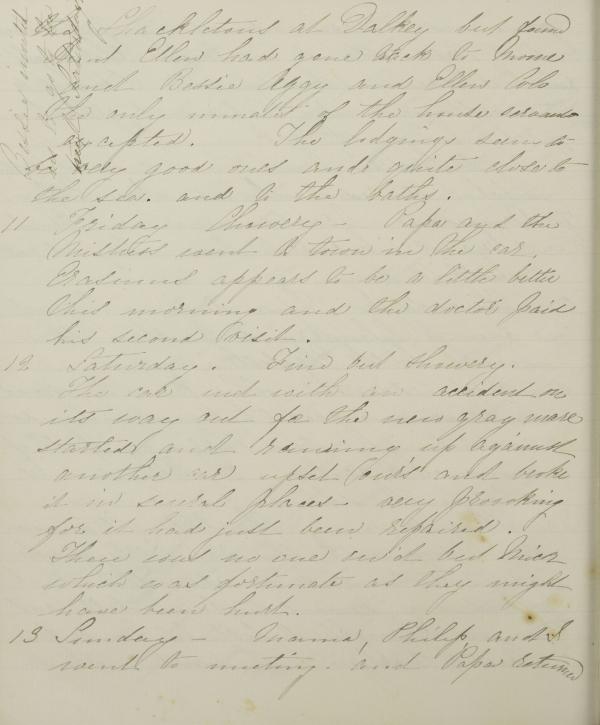 the Shackletons at Dalkey but found
Aunt Ellen had gone back to Mome
and Bessie Aggy and Ellen
the only inmates of the house servants
excepted. The lodgings seem to
be very good ones and quite close to
the sea. and to the baths.
11 Friday Showery - Papa and the
Mistress went to town in the car.
Erasmus appears to be a little better
this morning and the doctor paid
his second visit.
12 Saturday. Fine but showery.
The car met with an accident on
its way out for the new gray mare
started and running up against
another car upset ours and broke
it in several places - very provoking
for it had just been repaired.
There was no one on it but Mick
which was fortunate as they might
have been hurt.
13 Sunday - Mama, Philip and I
went to meeting. and Papa returned